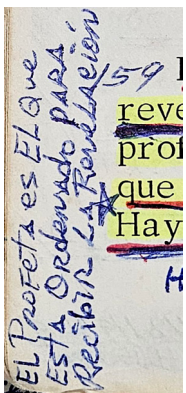 EL Profeta es EL Que
Esta Ordenado para
Recibir La Revelación
159
reve
prof
que
Hay
H